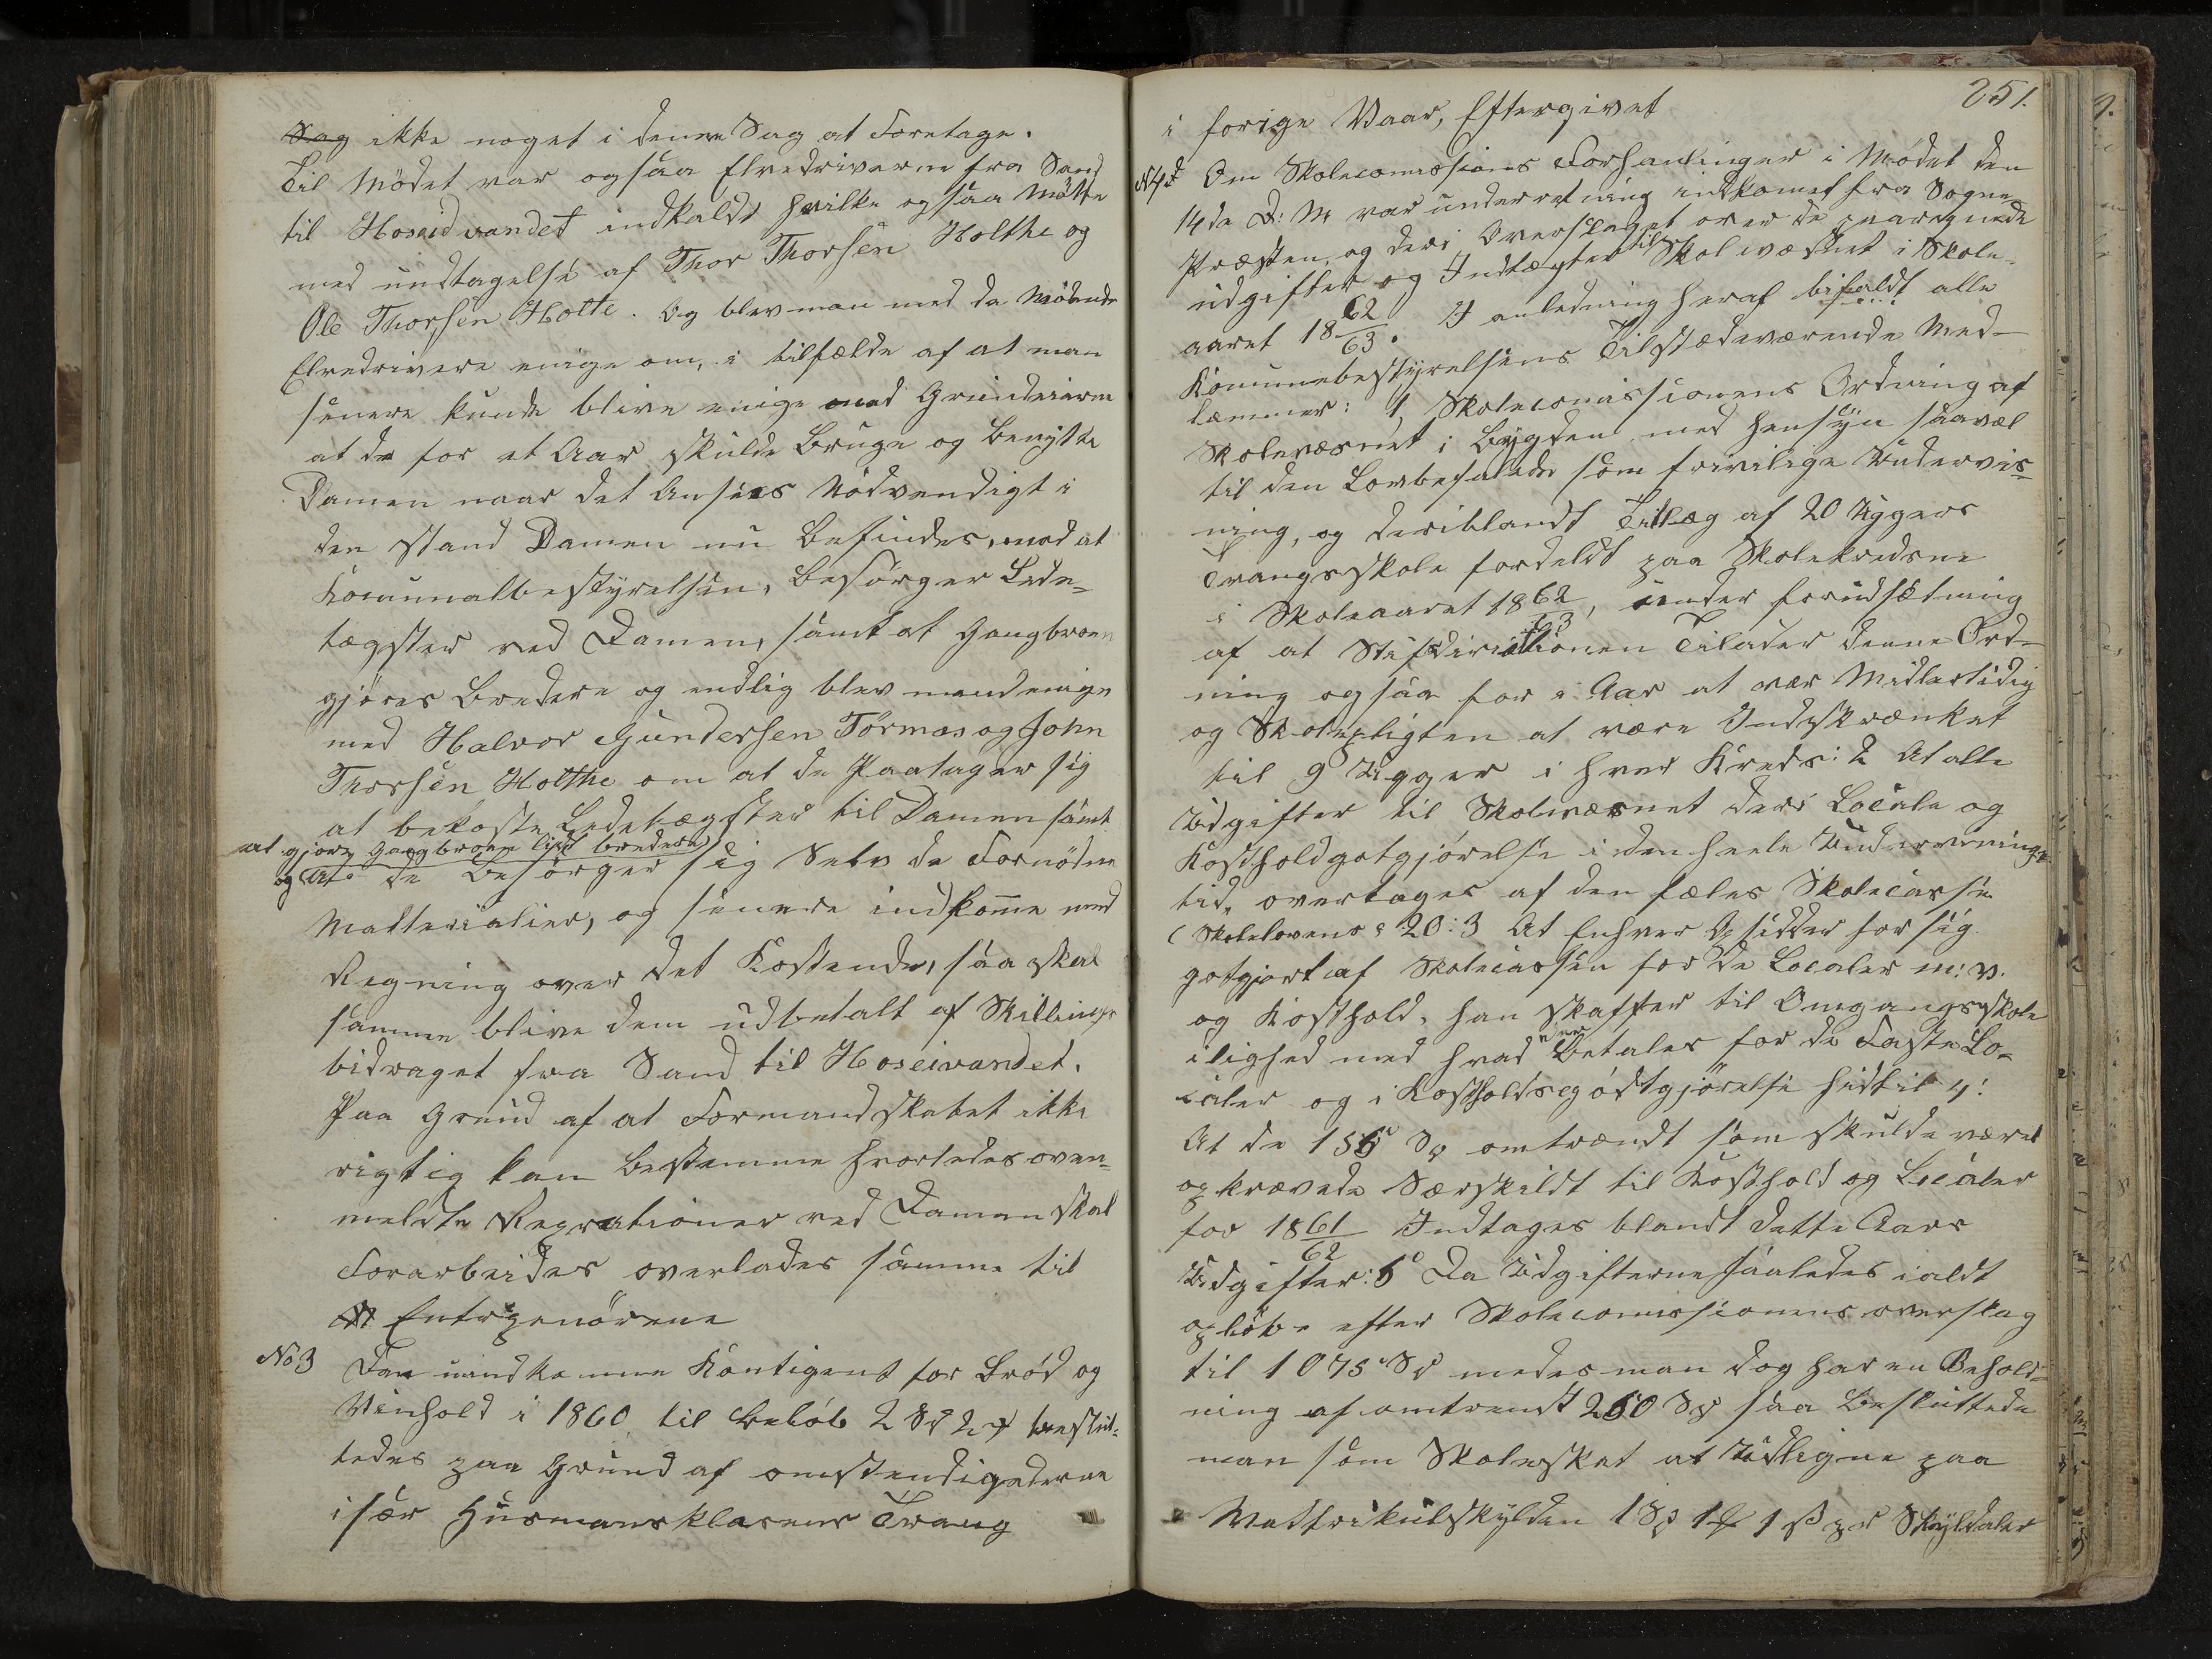 Sag ikke noget i denne Sag at Foretage.
Til Mödet var ogsaa Elvedriverne fra Sand
til Hoseidvandet indkaldt hvilke ogsaa Mötte
med undtagelse af Thor Thorsen Holthe og
Ole Thorsen Holte. Og blev man med de Mödende
Elvedrivere enige om, i tilfælde af at man
senere kunde blive enige med Grundeierne
at de for et Aar skulde Bruge og Benytte
Damen naar det Ansees Nödvendigt i
den stand Damen nu Befindes, mod at
Komunalbestyrelsen, Besörger Lede-
tægster ved Damen, samt at Gangbroen
gjöres Bredere og endlig blev mand enige
med Halvor Gundersen Törmas og John
Thorsen Holthe om at de Paatager sig
at bekoste Ledetægster til Damen samt
at gjöre Gangbroen lidt bredere
og At de Besörger sig Selv de Fornödne
Matterialier, og senere indkomme med
Regning over det Kostende, saa skal
samme blive dem udbetalt af Skillings
bidraget fra Sand til Hoseivandet.
Paa Grund af at Formandskabet ikke
rigtig kan Bestemme hvorledes oven-
meldte Reprationer ved Damen skal
Forarbeides overlades samme til
Entrepenörene
No 3 Den uindkomne Kontigent for Bröd og
Vinhold i 1860 til Belöb 2 Sp 2 beslut-
tedes paa Grund af omstendigederne
især Husmansklasens Trang
251.
i forige Vaar, Eftergivet
N 4de Om Skolecomissions Forhanlinger i Mödet den
14de D: M var underretning indkomet fra Sogne
Præsten, og deri Overslaget over de paaregnede
udgifter og Indtægter til Skolvæsnet i Skole-
aaret 18 62/63. I anledning heraf bifaldt alle
Komunebestyrelsens Tilstædeværende Med-
lemmer: 1, Skolecomissionens Ordning af
Skolevæsnet i Bygden med hensyn saavel
til den Lovbefalede som frivilige Undervis-
ning, og deriblandt Tillæg af 20 Uggers
Tvangsskole fordeldt paa Skolekredsene
i Skoleaaret 18 62/63, under forudsetning
af at Stifsdirektionen Tilader denne Ord-
ning ogsaa for i Aar at vær Midlertidig
og Skolepligten at være Indskrænket
til 9 Ugger i hver Kreds: 2 At alle
Udgifter til Skolevæsnet deri Locale og
Kostholdgotgjörelse i den heele Undervisnings
tid, overtages af den fæles Skolecasse
(Skolelovens § 20: 3 At Enhver Opsidder for sig
gotgjort af Skolecassen for de Localer m: v.
og Kosthold, han skaffer til Omgangsskole
ilighed med hvad der Betales for de Faste Lo-
caler og i Kostholdsgodtgjörelse hidtil 4:
At de 156 Sp omtrændt som skulde været
opkrævede Særskildt til Kosthold og Localer
for 18 61/62 Indtages blandt dette Aars
Udgifter: 5 Da Udgifterne saaledes ialdt
oplöbe efter Skolecomissionens overslag
til 1075 Sp medes man dog har en Behold-
ning af omtrendt 260 Sp saa Besluttede
man som Skoleskat at Udligne paa
Mattrikulskylden 1 Sp 1 1 ß pr Skyldaler